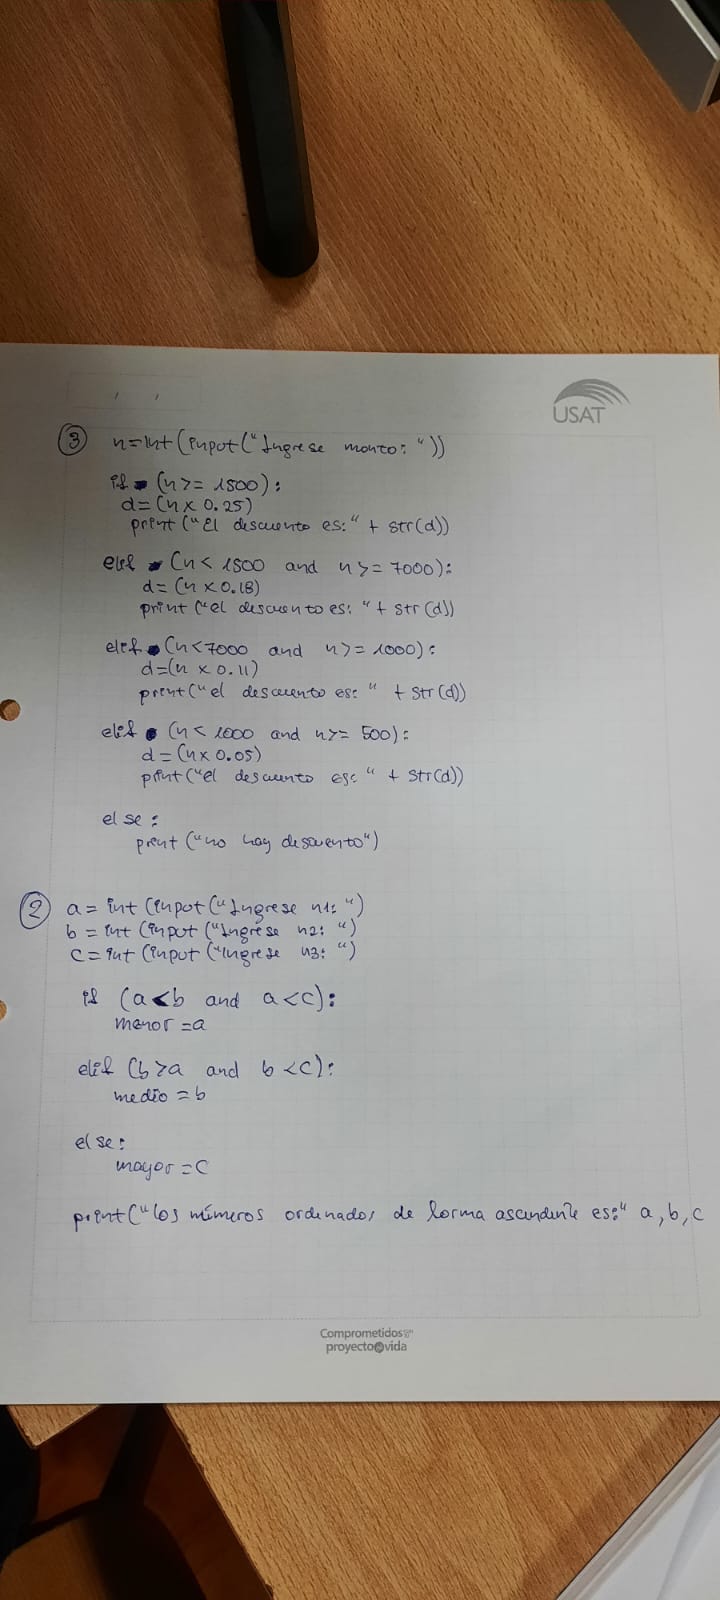 USAT
③ n=int(input("Ingrese monto: "))
if (n>= 1500):
d=(n x 0.25)
print("El descuento es:" + str(d))
elif (n< 1500 and n>= 7000):
d=(n x 0.18)
print("el descuento es: "+ str(d))
elif (n<7000 and n>= 1000):
d=(n x 0.11)
print("el descuento es: " + str(d))
elif (n< 1000 and n>= 500):
d=(n x 0.05)
print("el descuento es: " + str(d))
else:
print("no hay descuento")
② a= int(input("Ingrese n1: ")
b= int(input("Ingrese n2: ")
c= int(input("Ingrese n3: ")
if (a<b and a<c):
menor=a
elif (b>a and b<c):
medio=b
else:
mayor=c
print("los números ordenados de forma ascendente es:" a,b,c
Comprometidos
proyecto vida